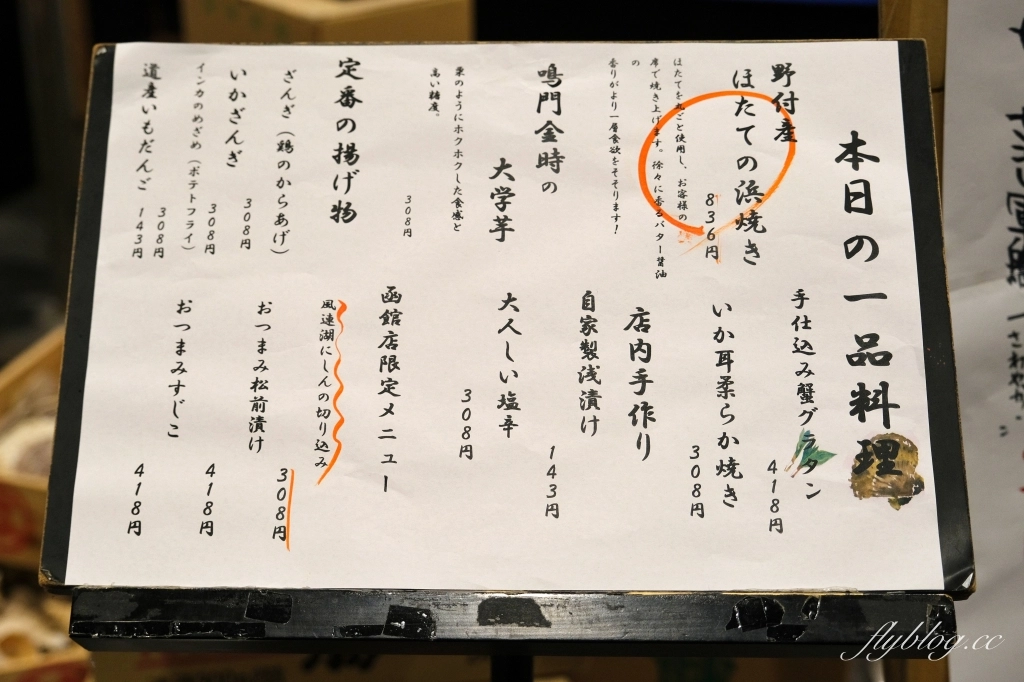 本日の一品料理
野付産
ほたての浜焼き
836円
ほたてを丸ごと使用し、お客様の
席で焼き上げます。徐々に香るバター醤油
の
香りがより一層食欲をそそります!
鳴門金時の
大学芋
栗のようにホクホクした食感と
高い糖度。
308円
定番の揚げ物
ざんぎ(鶏のからあげ)
308円
いかざんぎ
308円
インカのめざめ(ポテトフライ)
308円
遺産いもだんご
143円
手仕込み蟹グラタン
418円
いか耳柔らか焼き
308円
店内手作り
自家製浅漬け
143円
大人しい塩辛
308円
函館店限定メニュー
風連湖にしんの切り込み
308円
おつまみ松前漬け
418円
おつまみすじこ
418円
flyblog.cc